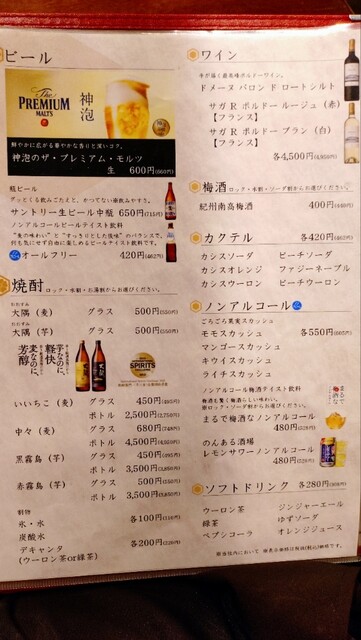 ビール
The
PREMIUM
MALT'S
神泡
鮮やかに広がる華やかな香りと深いコク。
神泡のザ・プレミアム・モルツ
生 600円(660円)
瓶ビール
グッとくる飲みごたえと、かつてない雑味なさすぎ。
サントリー生ビール中瓶 650円(715円)
ノンアルコールビールテイスト飲料
オールフリー 420円(462円)
焼酎 ロック・水割・お湯割からお選びください。
おおすみ
大隅（麦） グラス 500円(550円)
おおすみ
大隅（芋） グラス 500円(550円)
芋なのに、軽快
麦なのに、芳醇
SPIRITS
いいちこ（麦） グラス 450円(495円)
ボトル 2,500円(2,750円)
中々（麦） グラス 680円(748円)
ボトル 4,500円
黒霧島（芋） グラス 450円(495円)
ボトル 3,500円(3,850円)
赤霧島（芋） グラス 500円(550円)
ボトル 3,500円(3,850円)
割物
氷・水 各100円(110円)
炭酸水
デキャンタ 各200円(220円)
(ウーロン茶or緑茶)
ワイン
ドメーヌ バロン ド ロートシルト
サガ R ボルドー ルージュ（赤）
【フランス】
サガ R ボルドー ブラン（白）
【フランス】
各4,500円(4,950円)
梅酒 ロック・水割・ソーダ割からお選びください。
紀州南高梅酒 400円(440円)
カクテル 各420円(462円)
カシスソーダ ピーチソーダ
カシスオレンジ ファジーネーブル
カシスウーロン ピーチウーロン
ノンアルコール
ごろごろ果実スカッシュ
モモスカッシュ 各550円(605円)
マンゴースカッシュ
キウイスカッシュ
ライチスカッシュ
ノンアルコール梅酒テイスト飲料
梅酒も驚く梅酒らしい味わい。
※ロック・ソーダ割からお選びください。
まるで梅酒なノンアルコール
480円(528円)
まるで梅酒な
のんある酒場
レモンサワーノンアルコール
480円(528円)
ソフトドリンク 各280円(308円)
ウーロン茶 ジンジャーエール
緑茶 ゆずソーダ
ペプシコーラ オレンジジュース